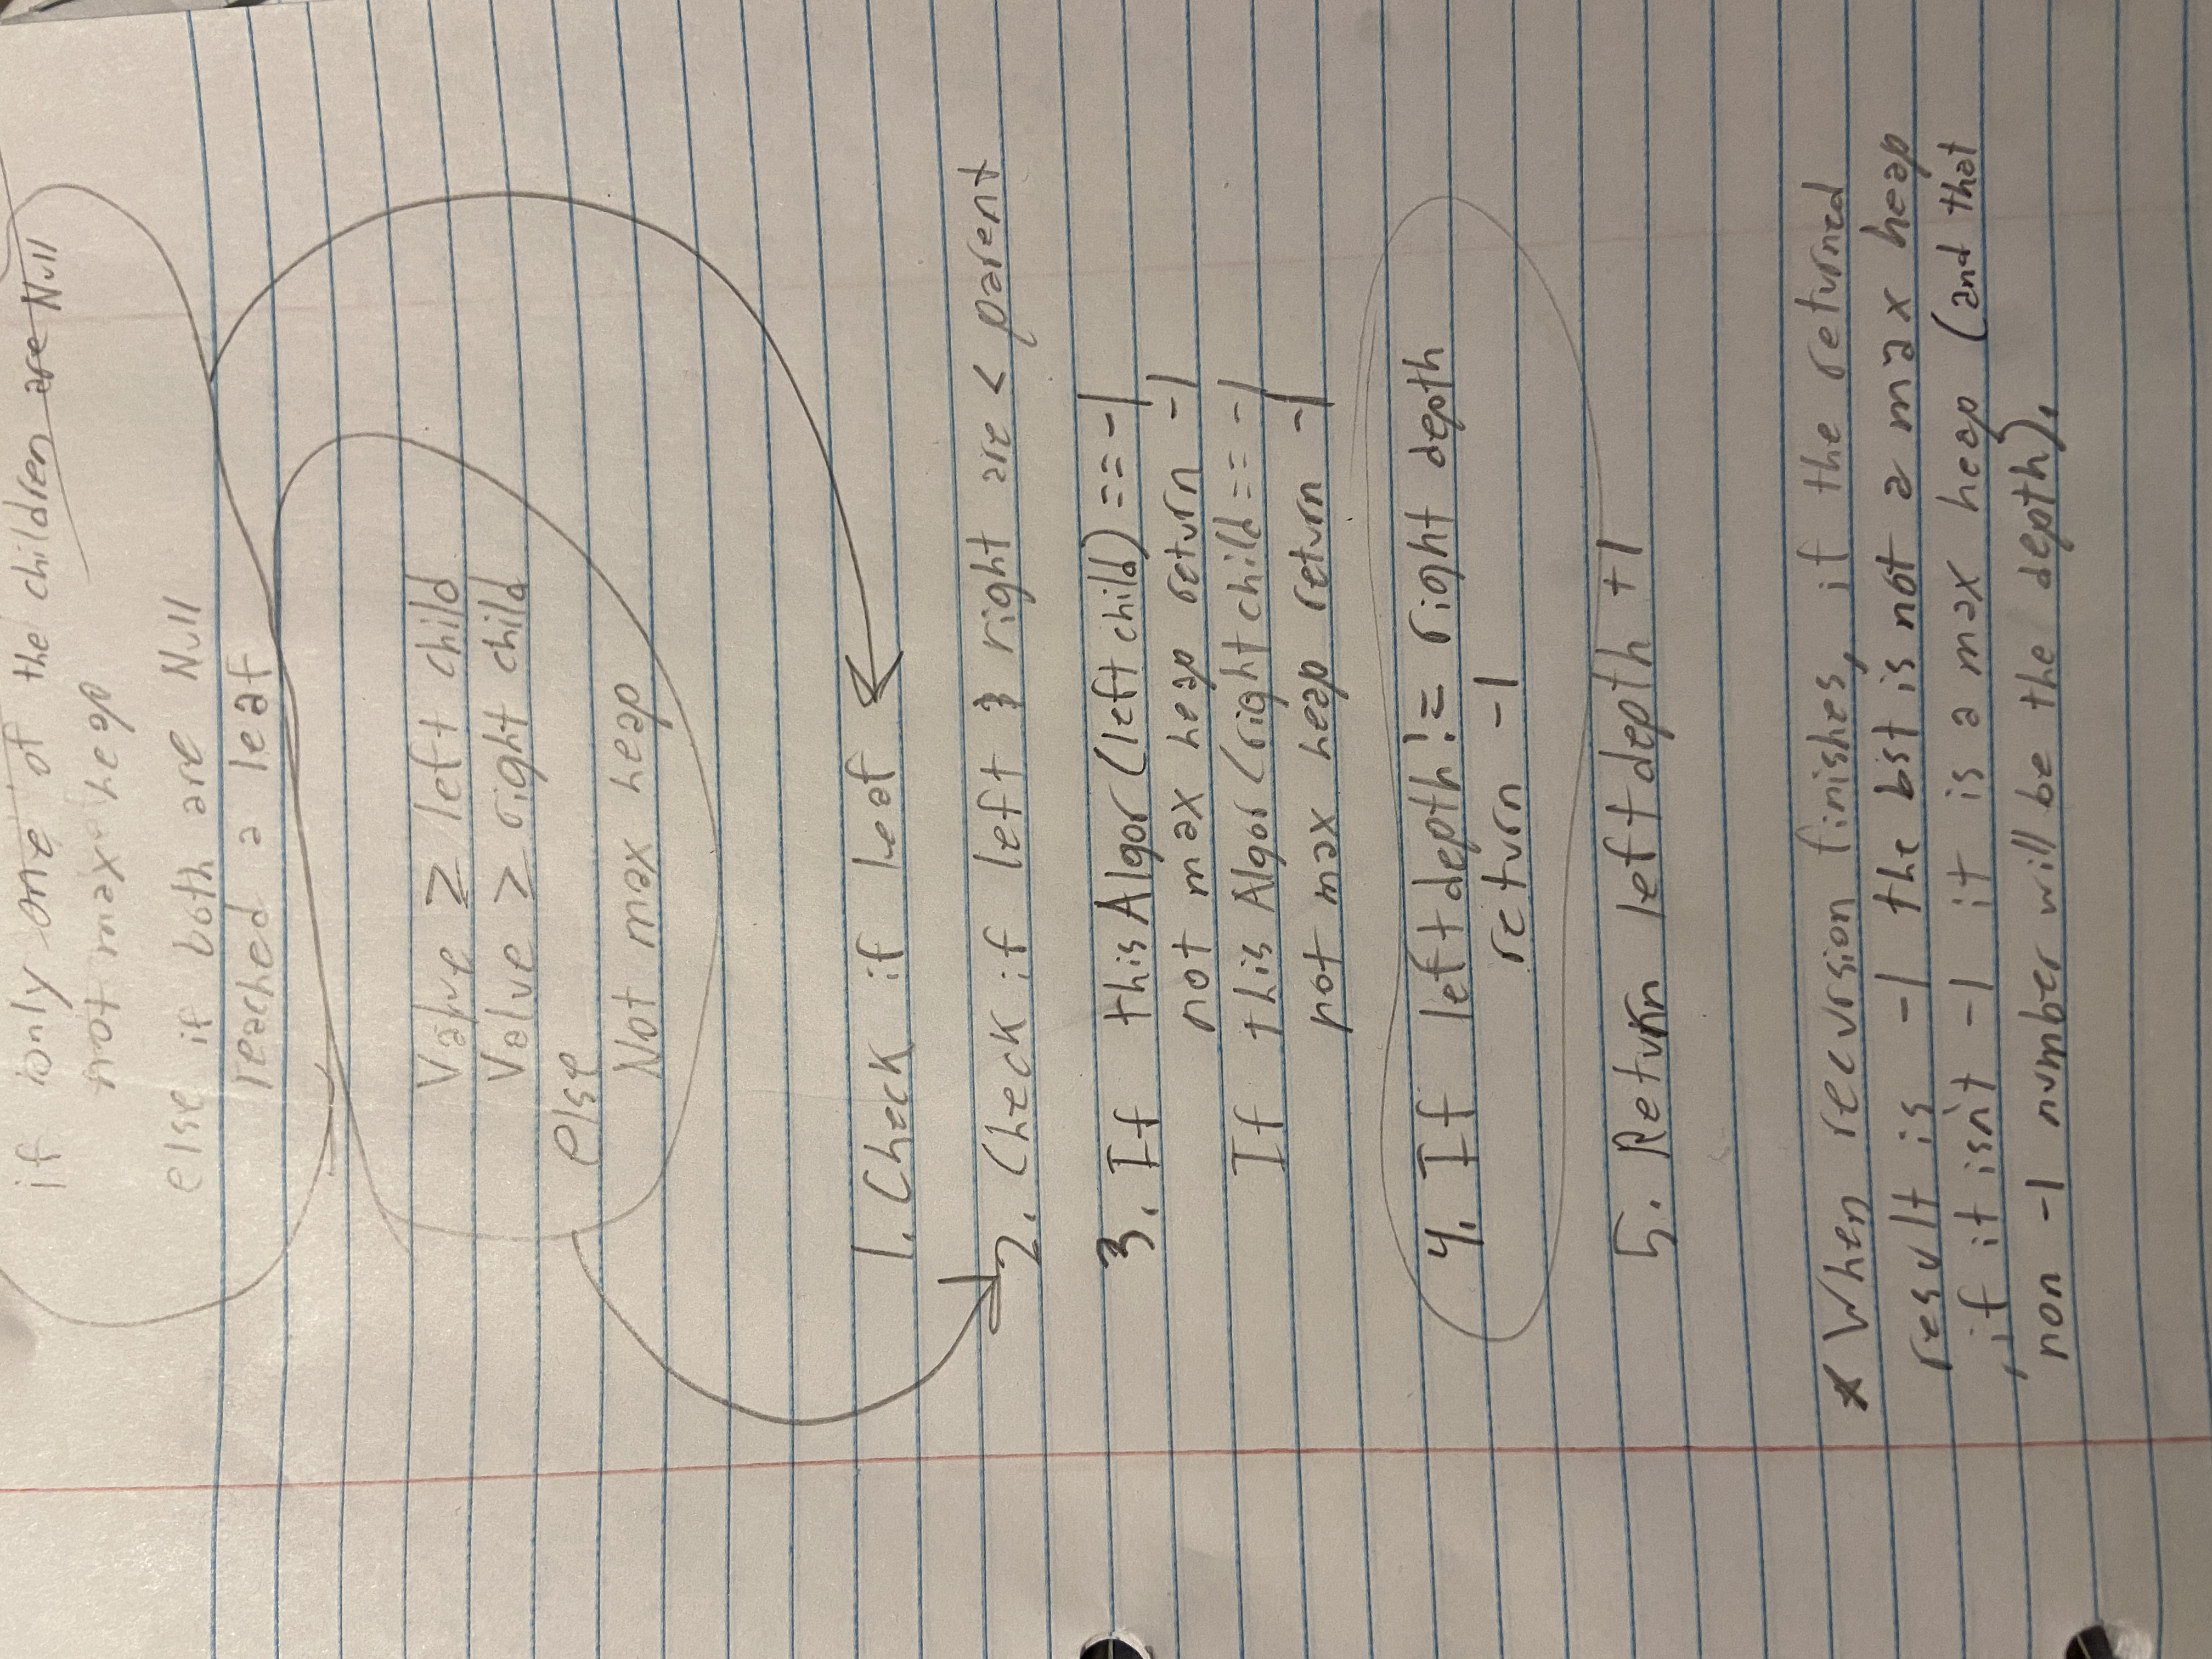 if only one of the children are Null
not max heap
else if both are Null
reached a leaf
Value ≥ left child
Value ≥ right child
else
Not max heap
1. Check if leaf
2. Check if left & right are < parent
3. If this Algor (left child) == -1
not max heap return -1
If this Algor (right child == -1
not max heap return -1
4. If left depth != right depth
return -1
5. Return left depth +1
* When recursion finishes, if the returned
result is -1 the bst is not a max heap
, if it isn't -1 it is a max heap (and that
non -1 number will be the depth).